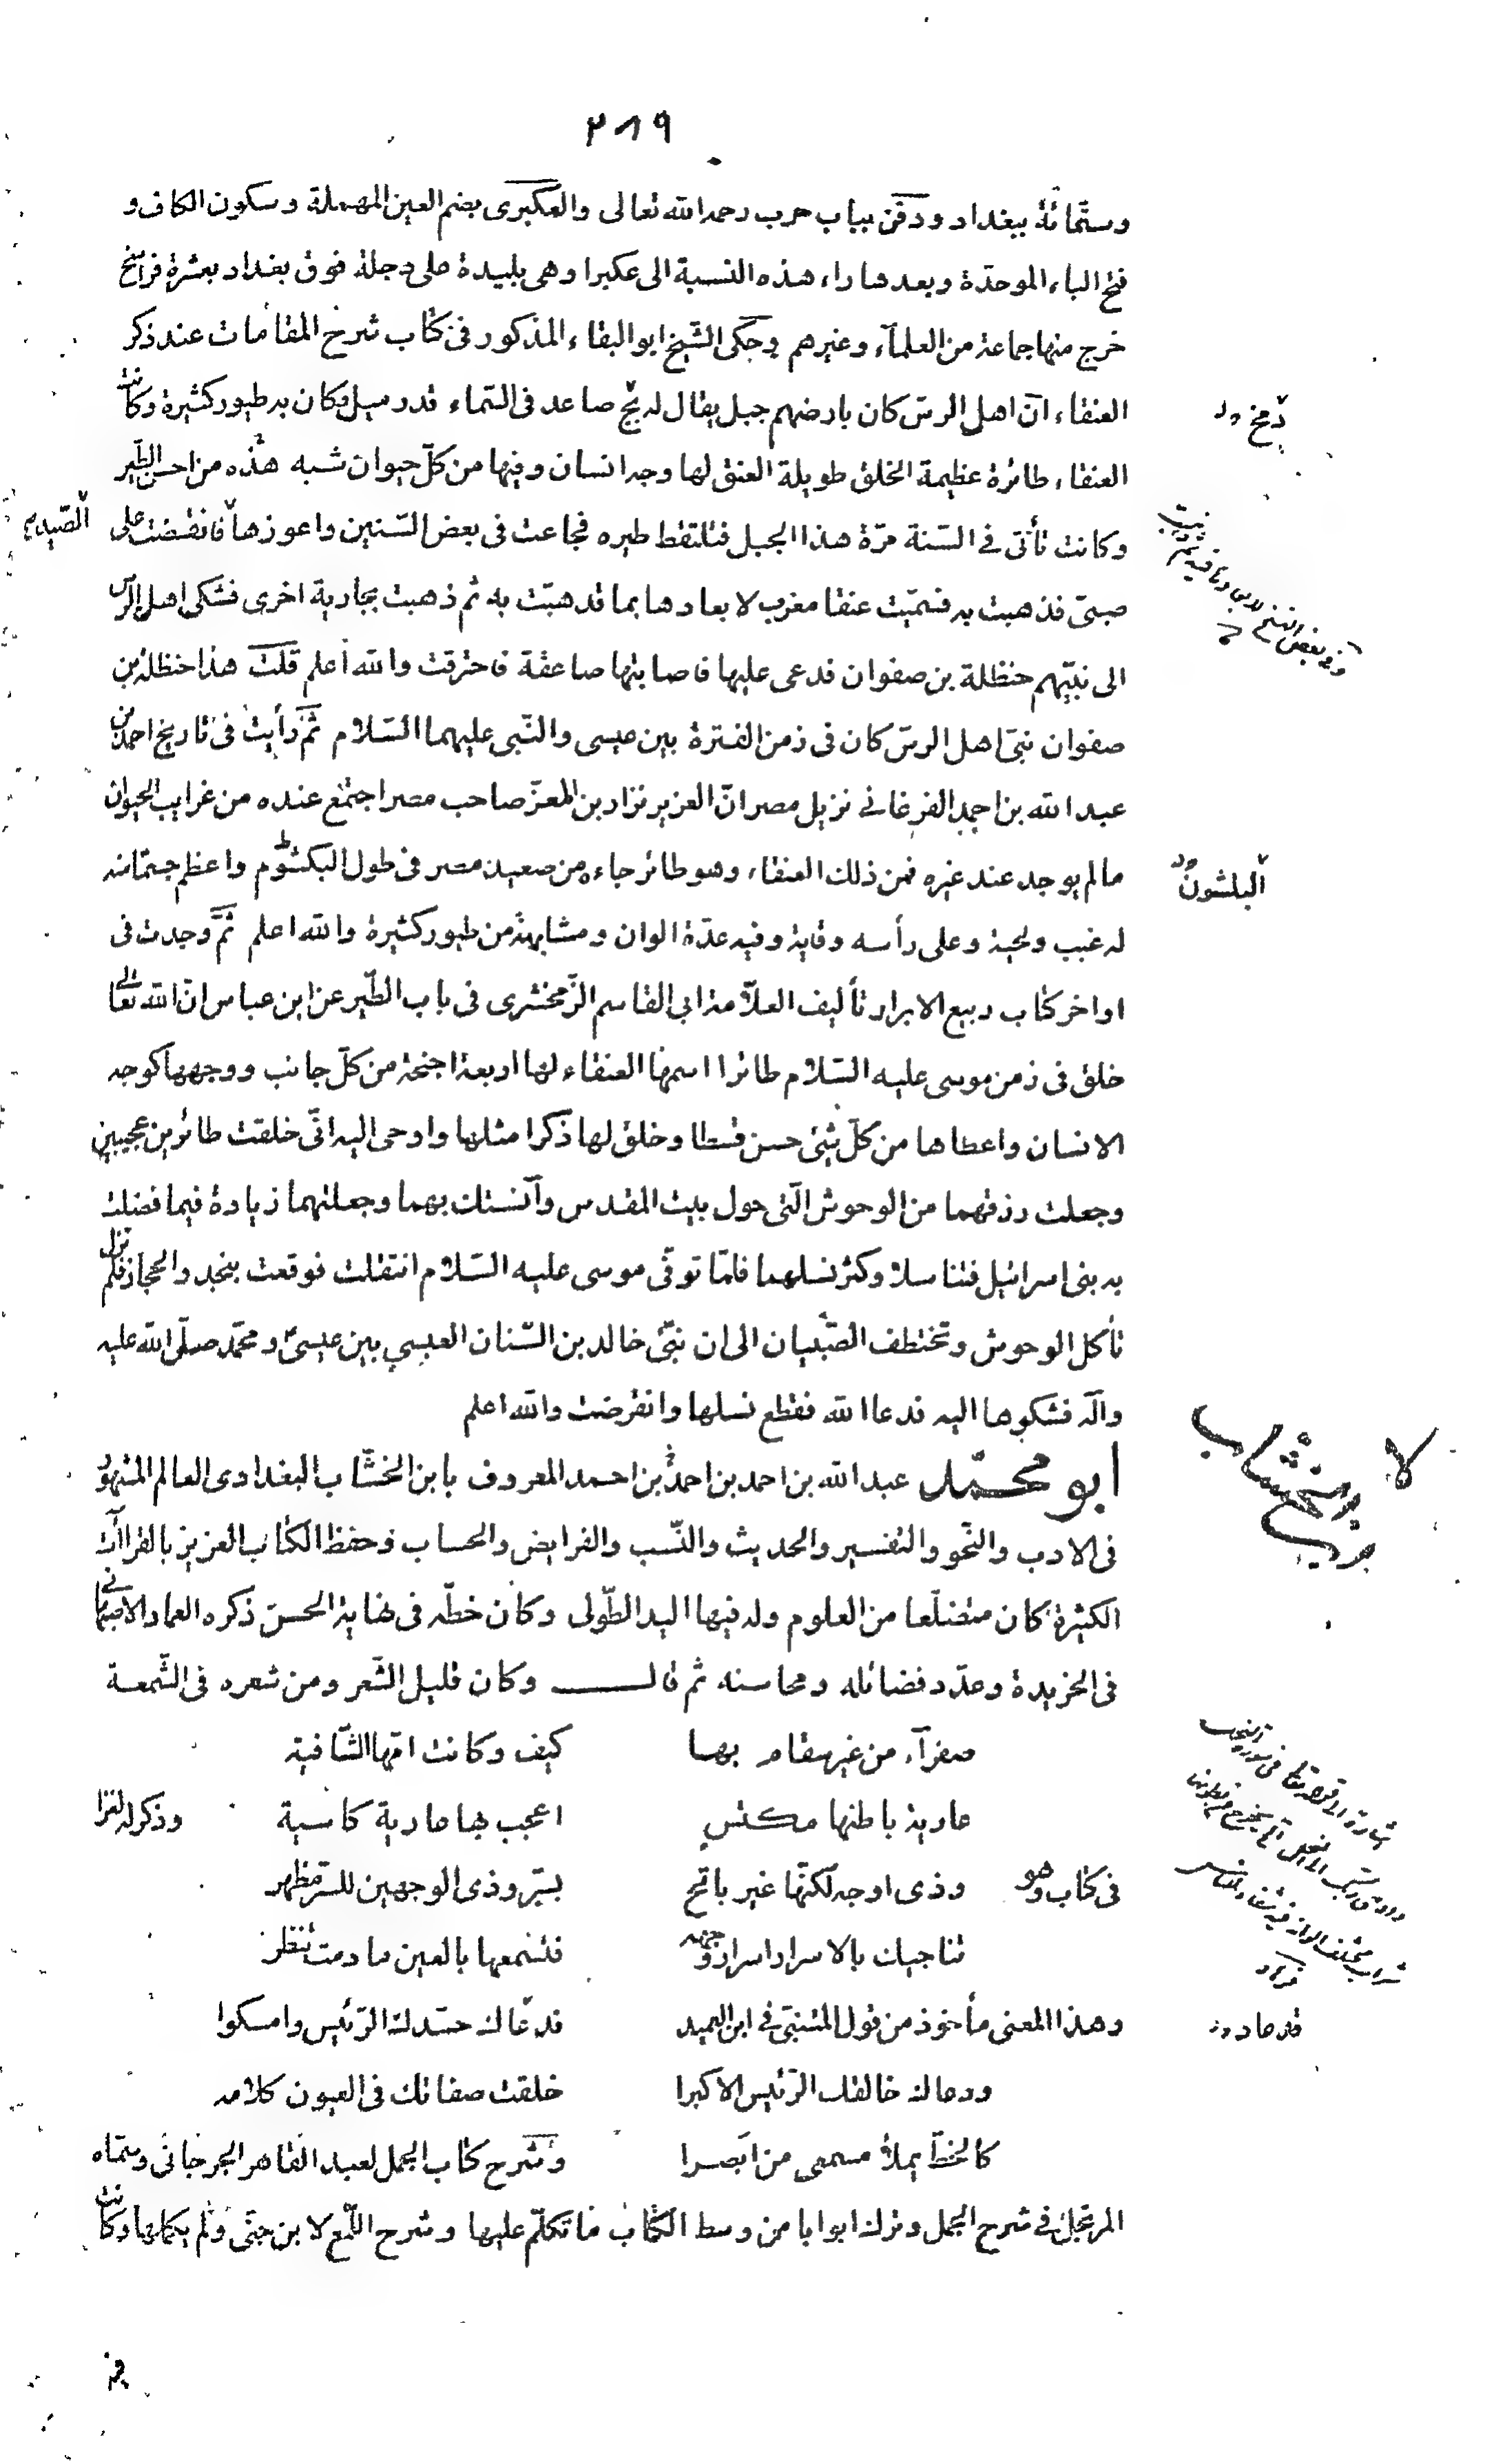 ٢٨٩
وستّمائة ببغداد ودفن بباب حرب رحمه الله تعالى والعكبرى بضم العين المهملة وسكون الكاف و
فتح الباء الموحدّة وبعدها راء هذه النسبة الى عكبرا وهى بليدة على دجلة فوق بغداد بعشرة فراسخ
خرج منها جماعة من العلمآء وغيرهم وحكى الشّيخ ابو البقاء المذكور فى كتاب شرح المقامات عند ذكر
العنقاء انّ اهل الرسّ كان بارضهم جبل يقال له مج صاعد فى السّماء قدر ميل وكان به طيور كثيرة وكانت
دمخ ول
العنقاء طائرة عظيمة الخلق طويلة العنق لها وجه انسان وفيها من كلّ حيوان شبه هذه من احسن الطّير
وكانت تأتى فى السّنة مرّة هذا الجبل فتلتقط طيره فجاعت فى بعض السّنين واعوزها فانقضت على
الصّيد
صبىّ فذهبت به فسمّيت عنقا مغرب لابعادها بما تذهبت به ثم ذهبت بجارية اخرى فشكى اهل الرس
الى نبيّهم حنظلة بن صفوان فدعى عليها فاصابتها صاعقة فاحترقت والله أعلم قلت هذا حنظلة بن
صفوان نبىّ اهل الرسّ كان فى زمن الفترة بين عيسى والنّبى عليهما السّلام ثمّ رأيت فى تاريخ احمد بن
عبد الله بن احمد الفرغانى نزيل مصر انّ العزيز نزار بن المعزّ صاحب مصر اجتمع عنده من غرايب الحيوان
ما لم يوجد عند غيره فمن ذلك العنقاء وهو طائر جاءه من صعيد مصر فى طول البكشوم واعظم جسما منه
البلشون
له غبب ولحية وعلى رأسه وقاية وفيه عدّة الوان ومشابهة من طيور كثيرة والله اعلم ثمّ وجدت فى
اواخر كتاب ربيع الابرار تأليف العلاّمة ابى القاسم الزّمخشرى فى باب الطّير عن ابن عباس انّ الله تعالى
خلق فى زمن موسى عليه السّلام طائرا اسمها العنقاء لها اربعة اجنحة من كلّ جانب ووجهها كوجه
الانسان واعطاها من كلّ شئ حسن قسطا وخلق لها ذكرا مثلها واوحى اليه انّى خلقت طائرين عجيبين
وجعلت رزقهما من الوحوش الّتى حول بيت المقدس وآنستك بهما وجعلتهما زيادة فيما فضلت
به بنى اسرائيل فتناسلا وكثر نسلهما فلمّا توفّى موسى عليه السّلام انتقلت فوقعت بنجد والحجاز فلم تزل
تأكل الوحوش وتختطف الصّبيان الى ان نبّئ خالد بن السّنان العبسى بين عيسىٰ ومحمّد صلّى الله عليه
وآله فشكوها اليه فدعا الله فقطع نسلها وانقرضت والله اعلم
ابو محمّد عبد الله بن احمد بن احمد بن احمد المعروف بابن الخشّاب البغدادى العالم المشهور
ابن الخشاب
فى الادب والنّحو والتفسير والحديث والنّسب والفرايض والحساب وحفظ الكتاب العزيز بالقراآت
الكثيرة كان متضلّعا من العلوم وله فيها اليد الطّولى وكان خطّه فى نهاية الحسن ذكره العماد الاصبهانى
فى الخريدة وعدّد فضائله ومحاسنه ثم قالـــــ وكان قليل الشّعر ومن شعره فى الشّمعة
صفرآء من غير سقام بها كيف وكانت امّها الشّافية
عارية باطنها مكتس اعجب بها عارية كاسية وذكر له لغزا
فى كتاب وهو وذى اوجه لكنّها غير بائح بسرّ وذى الوجهين للسرّ مظهر
تناجيك بالاسرار اسرار وجهه فتسمعها بالعين ما دمت تنظر
وهذا المعنى مأخوذ من قول المتنبىّ فى ابن العميد فدعاك حسّدك الرّئيس وامسكوا
ودعاك خالقك الرّئيس الاكبرا خلقت صفاتك فى العيون كلامه
كالخطّ يملأ مسمعى من ابصرا وشرح كتاب الجمل لعبد القاهر الجرجانى وسمّاه
المرتجل فى شرح الجمل وترك ابوابا من وسط الكتاب ما تكلّم عليها وشرح اللّمع لابن جنّى ولم يكملها وكانت